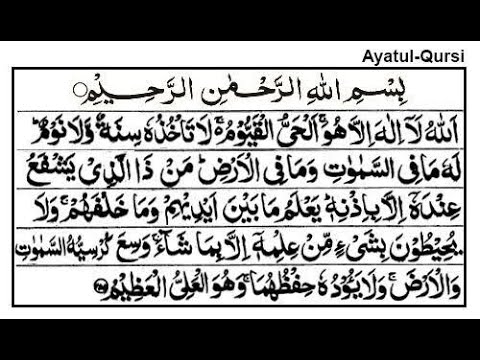 Ayatul-Qursi
بِسْمِ اللهِ الرَّحْمٰنِ الرَّحِيْمِ
اَللهُ لَآ اِلٰهَ اِلَّا هُوَ ۚ اَلْحَىُّ الْقَيُّوْمُ ۚ لَا تَاْخُذُهٗ سِنَةٌ وَّلَا نَوْمٌ ؕ
لَهٗ مَا فِى السَّمٰوٰتِ وَمَا فِى الْاَرْضِ ؕ مَنْ ذَا الَّذِىْ يَشْفَعُ
عِنْدَهٗٓ اِلَّا بِاِذْنِهٖ ؕ يَعْلَمُ مَا بَيْنَ اَيْدِيْهِمْ وَمَا خَلْفَهُمْ ۚ وَلَا
يُحِيْطُوْنَ بِشَىْءٍ مِّنْ عِلْمِهٖٓ اِلَّا بِمَا شَآءَ ۚ وَسِعَ كُرْسِيُّهُ السَّمٰوٰتِ
وَالْاَرْضَ ۚ وَلَا يَـُٔوْدُهٗ حِفْظُهُمَا ۚ وَهُوَ الْعَلِىُّ الْعَظِيْمُ ۝۲۵۵